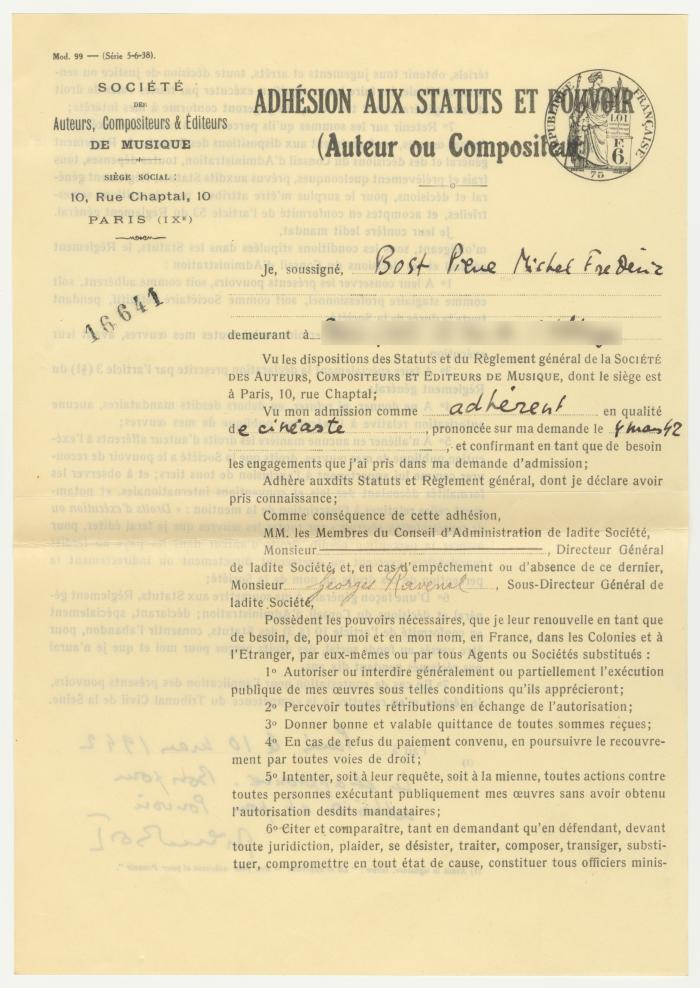 Mod. 99 — (Série 5-6-38).
SOCIÉTÉ
DES
Auteurs, Compositeurs & Éditeurs
DE MUSIQUE
SIÈGE SOCIAL :
10, Rue Chaptal, 10
PARIS (IXe)
16641
ADHÉSION AUX STATUTS ET POUVOIR
(Auteur ou Compositeur)
RÉPUBLIQUE FRANÇAISE
LOI
F.
6.
75
Je, soussigné, Bost Pierre Michel Frédéric
demeurant à
Vu les dispositions des Statuts et du Règlement général de la SOCIÉTÉ
DES AUTEURS, COMPOSITEURS ET EDITEURS DE MUSIQUE, dont le siège est
à Paris, 10, rue Chaptal;
Vu mon admission comme adhérent en qualité
de cinéaste, prononcée sur ma demande le 4 mars 42
, et confirmant en tant que de besoin
les engagements que j'ai pris dans ma demande d'admission;
Adhère auxdits Statuts et Règlement général, dont je déclare avoir
pris connaissance;
Comme conséquence de cette adhésion,
MM. les Membres du Conseil d'Administration de ladite Société,
Monsieur , Directeur Général
de ladite Société, et, en cas d'empêchement ou d'absence de ce dernier,
Monsieur Georges Ravenel, Sous-Directeur Général de
ladite Société,
Possèdent les pouvoirs nécessaires, que je leur renouvelle en tant que
de besoin, de, pour moi et en mon nom, en France, dans les Colonies et à
l'Etranger, par eux-mêmes ou par tous Agents ou Sociétés substitués :
1º Autoriser ou interdire généralement ou partiellement l'exécution
publique de mes œuvres sous telles conditions qu'ils apprécieront;
2º Percevoir toutes rétributions en échange de l'autorisation;
3º Donner bonne et valable quittance de toutes sommes reçues;
4º En cas de refus du paiement convenu, en poursuivre le recouvre-
ment par toutes voies de droit;
5º Intenter, soit à leur requête, soit à la mienne, toutes actions contre
toutes personnes exécutant publiquement mes œuvres sans avoir obtenu
l'autorisation desdits mandataires;
6º Citer et comparaître, tant en demandant qu'en défendant, devant
toute juridiction, plaider, se désister, traiter, composer, transiger, substi-
tuer, compromettre en tout état de cause, constituer tous officiers minis-